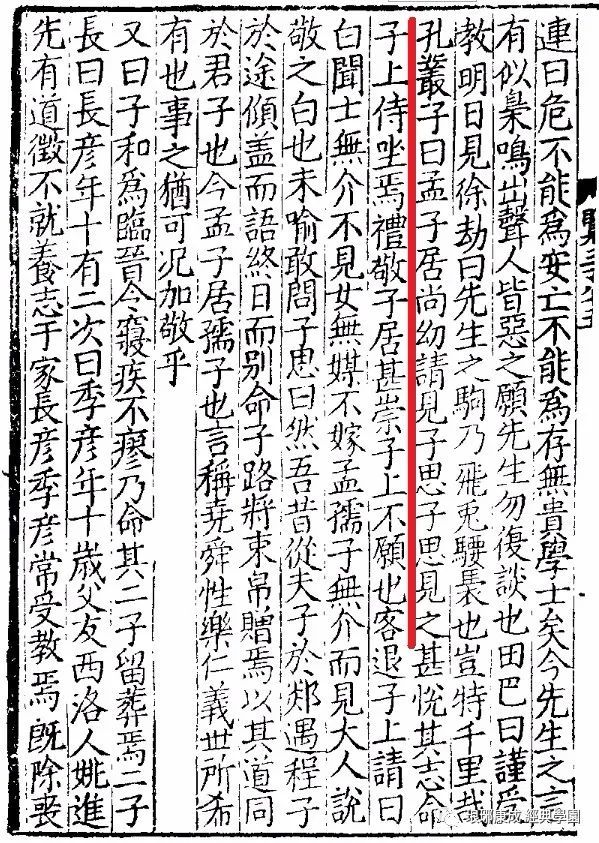 連曰危不能爲安亡不能爲存無貴學士矣今先生之言
有似梟鳴出聲人皆惡之願先生勿復談也田巴曰謹受
教明日見徐劫曰先生之駒乃飛兎騕褭也豈特千里哉
孔叢子曰孟子居尚幼請見子思子思見之甚悅其志命
子上侍坐焉禮敬子居甚崇子上不願也客退子上請曰
白聞士無介不見女無媒不嫁孟孺子無介而見大人說
敬之白也未喻敢問子思曰然吾昔從夫子於郯遇程子
於途傾盖而語終日而別命子路將束帛贈焉以其道同
於君子也今孟子居孺子也言稱堯舜性樂仁義世所希
有也事之猶可况加敬乎
又曰子和爲臨晉令寢疾不瘳乃命其二子留葬焉二子
長曰長彥年十有二次曰季彥年十歲父友西洛人姚進
先有道徵不就養志于家長彥季彥常受教焉旣除喪
琅琊康成經典學園